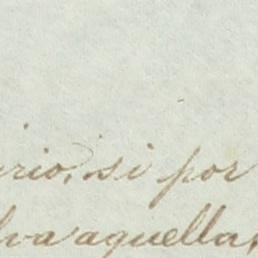 rio, si por
lva aquella,